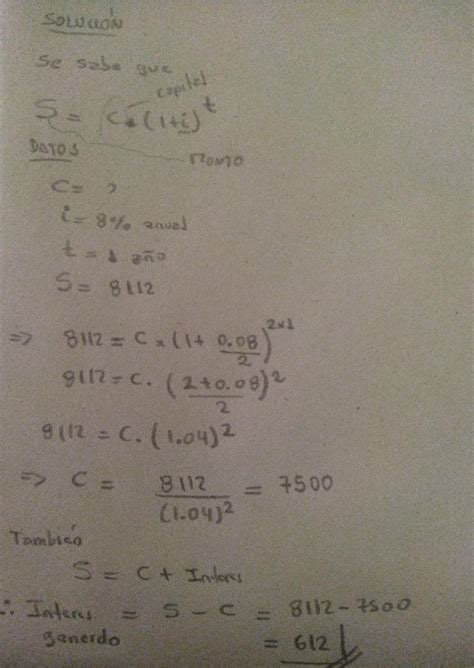 SOLUCIÓN
Se sabe que
capital
S = C * (1+i)^t
DATOS
Monto
C = ?
i = 8% anual
t = 1 año
S = 8112
=> 8112 = C × (1 + 0.08/2)^2×1
8112 = C. (2+0.08/2)^2
8112 = C. (1.04)^2
=> C = 8112/(1.04)^2 = 7500
También
S = C + Interes
∴ Interes = S - C = 8112 - 7500
ganerdo = 612